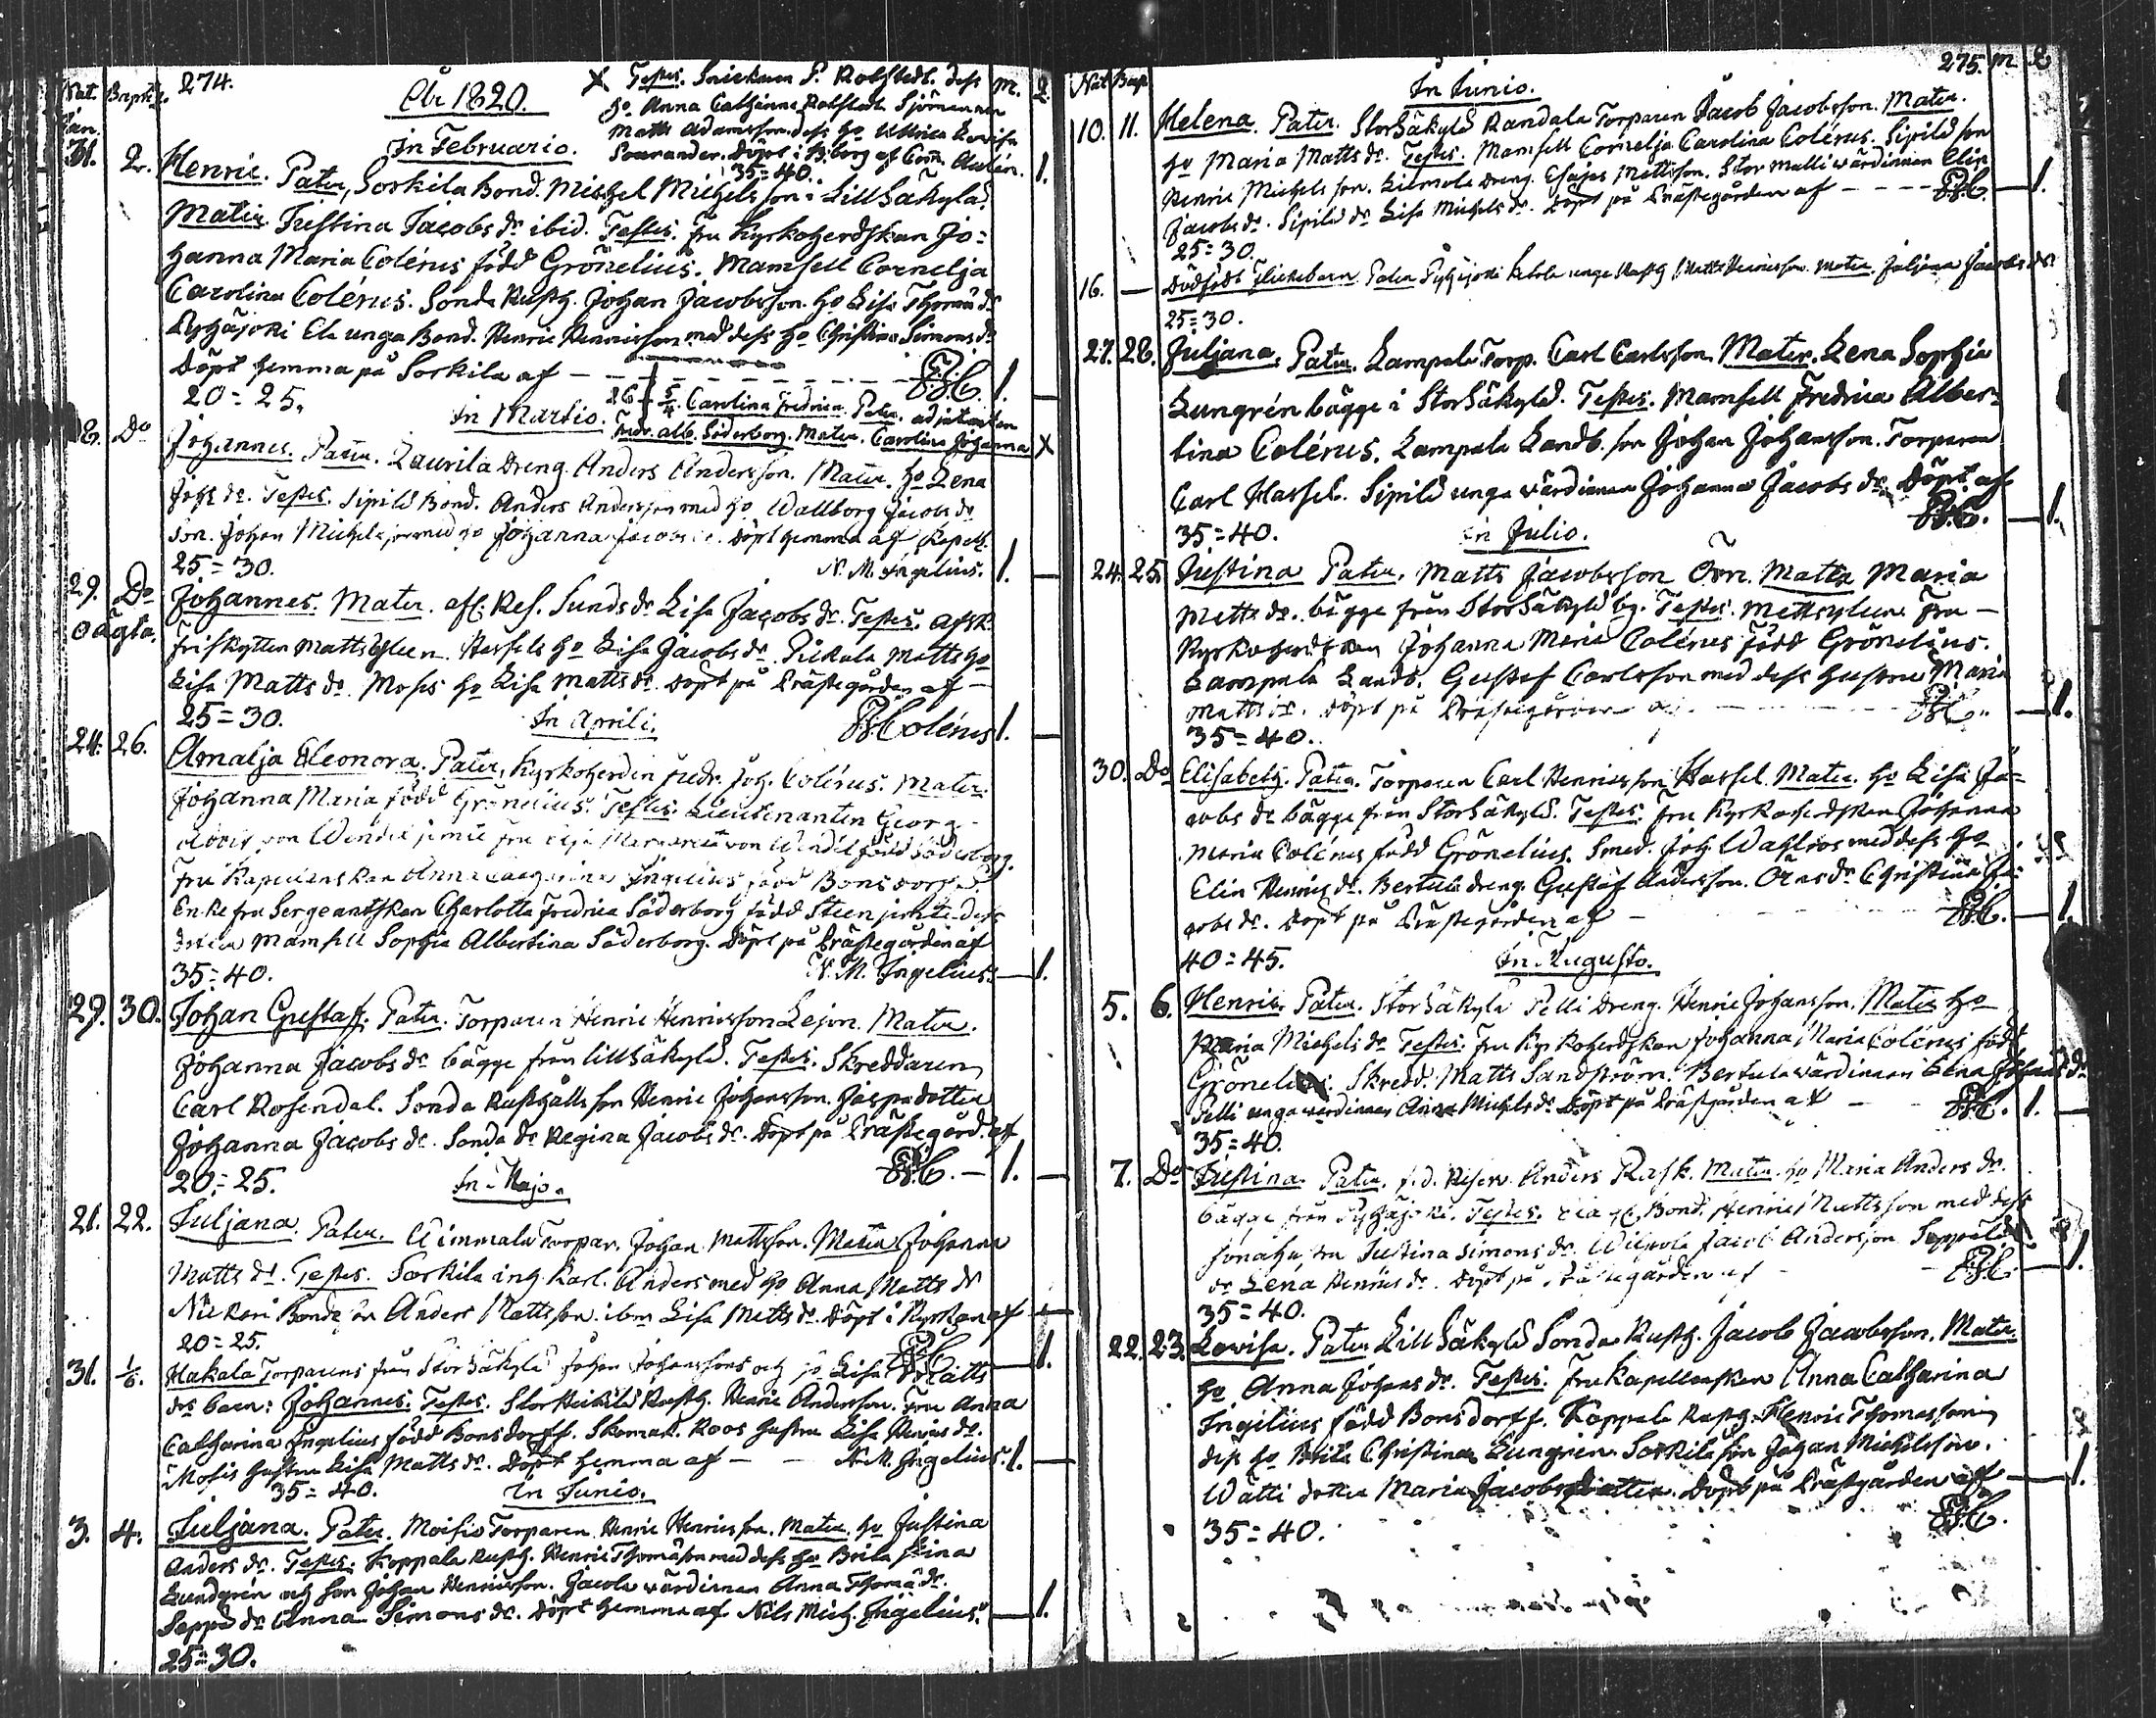 274.
Åår 1820.
X Testes. Snickaren P. Rohstedt. dess
ho. Anna Catharina Rohstedt Sjömannen
Matts Adamsson. dess ho Ullrica Lovisa
Sourander. Döpt i B:borg af Com.
35=40.
Nat. Bapt. m. q.
In Februario.
Jan.
31. 2. Henric. Pater, Sorkila Bond. Michel Michelsson i Lillsäkylä.
Mater Justina Jacobs dr ibid. Testes. Fru Kyrkoherdskan Jo=
hanna Maria Colérus född Grönelius. Mamsell Cornelja
Carolina Colérus. Sonda Rusth. Johan Jacobsson. ho Lisa Thomä dr
Pyhäjoki Ela unga Bond. Henric Henricsson med dess ho Christina Simons dr
Döpt hemma på Sorkila af — F.J.C. 1.
20=25.
In Martio. 26 — 5/4. Carolina Fredrica. Pater. adjutanten
Fredr. Alb. Söderborg. Mater. Carolina Johanna X
8. Do Johannes. Pater. Laurila Dreng. Anders Andersson. Mater. ho Lena
Johs dr. Testes. Sipilä Bond. Anders Andersson med ho Wallborg Jacobs dr
Son. Johan Michelsson med ho Johanna Jacobs dr. Döpt hemma af Capell.
25=30. N. M. Ingelius. 1.
29. Do Johannes. Mater. afl. Res. Sunds dr Lisa Jacobs dr. Testes. Afsk.
oägta. Friskytten Matts Gleen. Hassels ho Lisa Jacobs dr. Pickala Matts ho
Lisa Matts dr. Mosis ho Lisa Matts dr. Döpt på Prästegården af —
25=30. F.J. Colérus 1.
In Aprili.
24. 26. Amalja Eleonora. Pater, Kyrkoherden Fredr. Joh. Colérus. Mater.
Johanna Maria, född Grönelius. Testes. Lieutenanten Georg
von Wendel jemte fru von Wendel född Söderborg.
Fru Kapellanskan Anna Catharina Ingelius född Bonsdorff.
Enke fru Sergeantskan Charlotta Fredrica Söderborg född Steen jemte dess
dotter Mamsell Sophia Albertina Söderborg. Döpt på Prästegården af
35=40. N. M. Ingelius. 1.
29. 30. Johan Gustaff. Pater. Torparen Henric Henricsson Lejon. Mater.
Johanna Jacobs dr bägge från Lillsäkylä. Testes. Skreddaren
Carl Rosendal. Sonda Rusthålls son Henric Johansson. Jaspa dotter
Johanna Jacobs dr. Sonda dr Regina Jacobs dr. Döpt på Prästegård. af
20=25. F.J.C. — 1.
In Majo.
21. 22. Juljana. Pater. Torpar. Johan Mattsson. Mater Johanna
Matts dr. Testes. Sorkila ing. Karl. Anders med ho Anna Matts dr
Bonde son Anders Mattsson. ibm Lisa Matts dr. Döpt i Kyrkan af
20=25. F.J.C. 1.
31. 1/6. Hakala Torparens från Storsäkylä Johan Johanssons och ho Lisa Matts
drs barn: Johannes. Testes. Rusth. Henric Andersson. Fru Anna
Catharina Ingelius född Bonsdorff. Skomak. Roos hustru Lisa Henrics dr.
Mosis hustru Lisa Matts dr. Döpt hemma af — N. M. Ingelius. 1.
35=40.
In Junio.
3. 4. Juljana. Pater. Moisio Torparen Henric Henricsson. Mater. ho Justina
Anders dr. Testes. Koppala Rusth. Henric Thomäson med dess ho Brita Stina
Lundgrén och son Johan Henricsson. Jacola wärdinnan Anna Thomä dr.
Seppä dr Anna Simons dr. Döpt hemma af Nils Mich. Ingelius. 1.
25=30.
275. m. q
Nat Bap
In Junio.
10. 11. Helena. Pater. Storsäkylä Randala Torparen Jacob Jacobsson. Mater.
ho Maria Matts dr. Testes. Mamsell Cornelja Carolina Colérus. Sipilä son
Henric Michelsson. Dreng. Esajas Mattsson. Stor Matti wärdinnan Elin
Jacobs dr. Sipilä dr Lisa Michels dr. Döpt på Prästegården af — F.J.C. — 1.
25=30.
16. — Dödfödt Flickebarn. Pater Pyhäjoki unga Rusth. Matts Henricsson. Mater. Juljana Jacobs dr.
25=30.
27. 28. Juljana. Pater. Lampala Torp. Carl Carlsson. Mater. Lena Sophia
Lungrén bägge i Storsäkylä. Testes. Mamsell Fredrica Alber=
tina Colérus. Lampala Landb. son Johan Johansson. Torparen
Carl Hassel. Sipilä unga wärdinnan Johanna Jacobs dr. Döpt af
35=40. F.J.C. — 1.
In Julio.
24. 25. Justina Pater. Matts Jacobsson Örn. Mater Maria
Matts dr. bägge från Storsäkylä by. Testes. Fru —
Kyrkoherdskan Johanna Maria Colérus född Grönelius.
Lampala Landb. Gustaf Carlsson med dess hustru Maria
Matts dr. Döpt på Prästegården af — F.J.C. — 1.
35=40.
30. Do Elisabeth. Pater. Torparen Carl Henricsson Hassel. Mater. ho Lisa Ja=
cobs dr bägge från Storsäkylä. Testes. Fru Kyrkoherdskan Johanna
Maria Colérus född Grönelius. Smed. Joh. Wahlros med dess ho
Elin Henrics dr. Bertula dreng Gustaf Andersson. Örns dr Christina Ja=
cobs dr. Döpt på Prästegården af — F.J.C. — 1.
40=45.
In Augusto.
5. 6. Henric. Pater. Storsäkylä Pelli Dreng. Henric Johansson. Mater ho
Maria Michels dr Testes. Fru Kyrkoherdskan Johanna Maria Colérus född
Grönelius. Skredd. Matts Sandström. Bertula wärdinnan Lena Johans dr
Pelli unga wärdinnan Anna Michels dr Döpt på Prästgården af — F.J.C. 1.
35=40.
7. Do Justina. Pater. f.d. Reserv. Anders Rask. Mater. ho Maria Anders dr.
bägge från Pyhäjoki. Testes. Bond. Henric Mattsson med dess
sonahustru Justina Simons dr. Jacob Andersson Seppälä
dr Lena Henrics dr. Döpt på Prästegården af — F.J.C. — 1.
35=40.
22. 23. Lovisa. Pater Lillsäkylä Sonda Rusth. Jacob Jacobsson. Mater
ho Anna Johans dr. Testes. Fru Kapellanskan Anna Catharina
Ingelius född Bonsdorff. Koppala Rusth. Henric Thomasson
dess ho Brita Christina Lungrén. Sorkila son Johan Michelsson.
Watti dotter Maria Jacobs dotter. Döpt på Prästgården af — 1.
35=40. F.J.C.